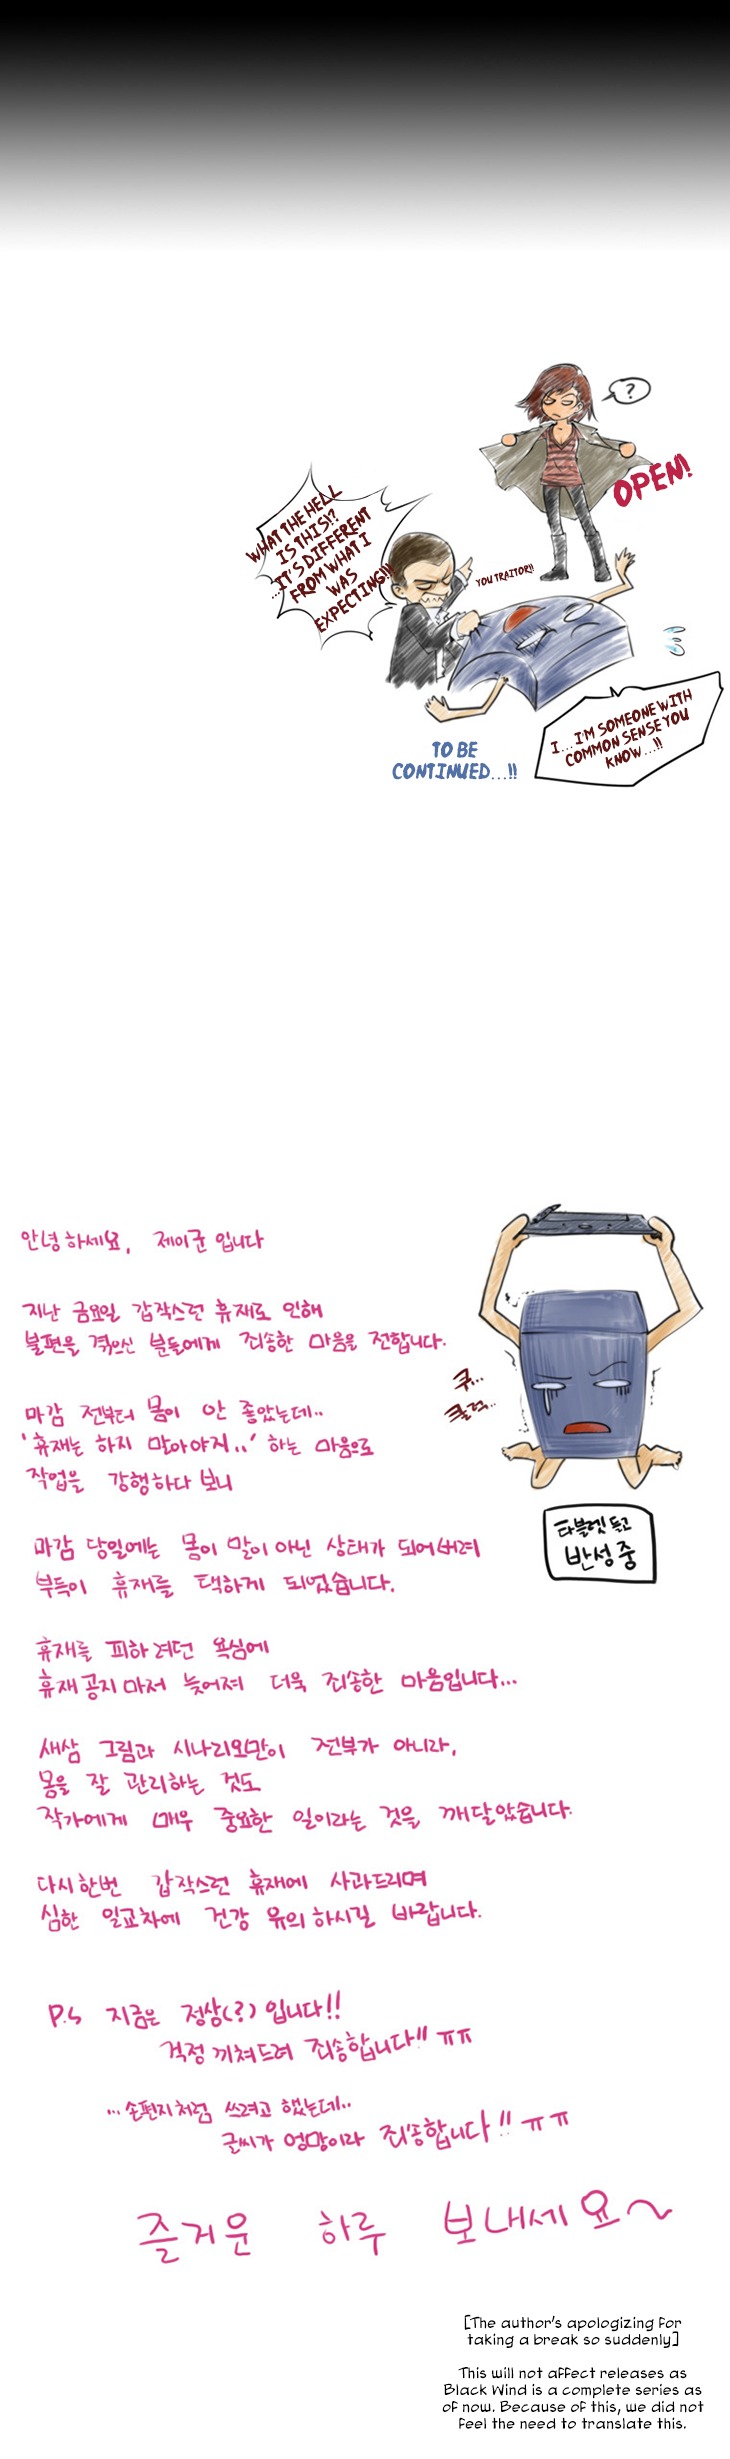 ?
OPEN!
WHAT THE HELL
IS THIS!?
...IT'S DIFFERENT
FROM WHAT I
WAS
EXPECTING!!!
YOU TRAITOR!!
I...I'M SOMEONE WITH
COMMON SENSE YOU
KNOW...!!
TO BE
CONTINUED...!!
안녕하세요, 제이군입니다
지난 금요일 갑작스런 휴재로 인해
불편을 겪으신 분들에게 죄송한 마음을 전합니다.
마감 전부터 몸이 안 좋았는데..
'휴재는 하지 말아야지..' 하는 마음으로
작업을 강행하다 보니
쿠...
쿨럭...
타블렛 들고
반성중
마감 당일에는 몸이 말이 아닌 상태가 되어버려
부득이 휴재를 택하게 되었습니다.
휴재를 피하려던 욕심에
휴재공지마저 늦어져 더욱 죄송한 마음입니다...
새삼 그림과 시나리오만이 전부가 아니라,
몸을 잘 관리하는 것도
작가에게 매우 중요한 일이라는 것을 깨달았습니다.
다시한번 갑작스런 휴재에 사과드리며
심한 일교차에 건강 유의하시길 바랍니다.
P.S 지금은 정상(?)입니다!!
걱정끼쳐드려 죄송합니다!! ㅠㅠ
...손편지처럼 쓰려고 했는데..
글씨가 엉망이라 죄송합니다!! ㅠㅠ
즐거운 하루 보내세요~
[The author's apologizing for
taking a break so suddenly]
This will not affect releases as
Black Wind is a complete series as
of now. Because of this, we did not
feel the need to translate this.